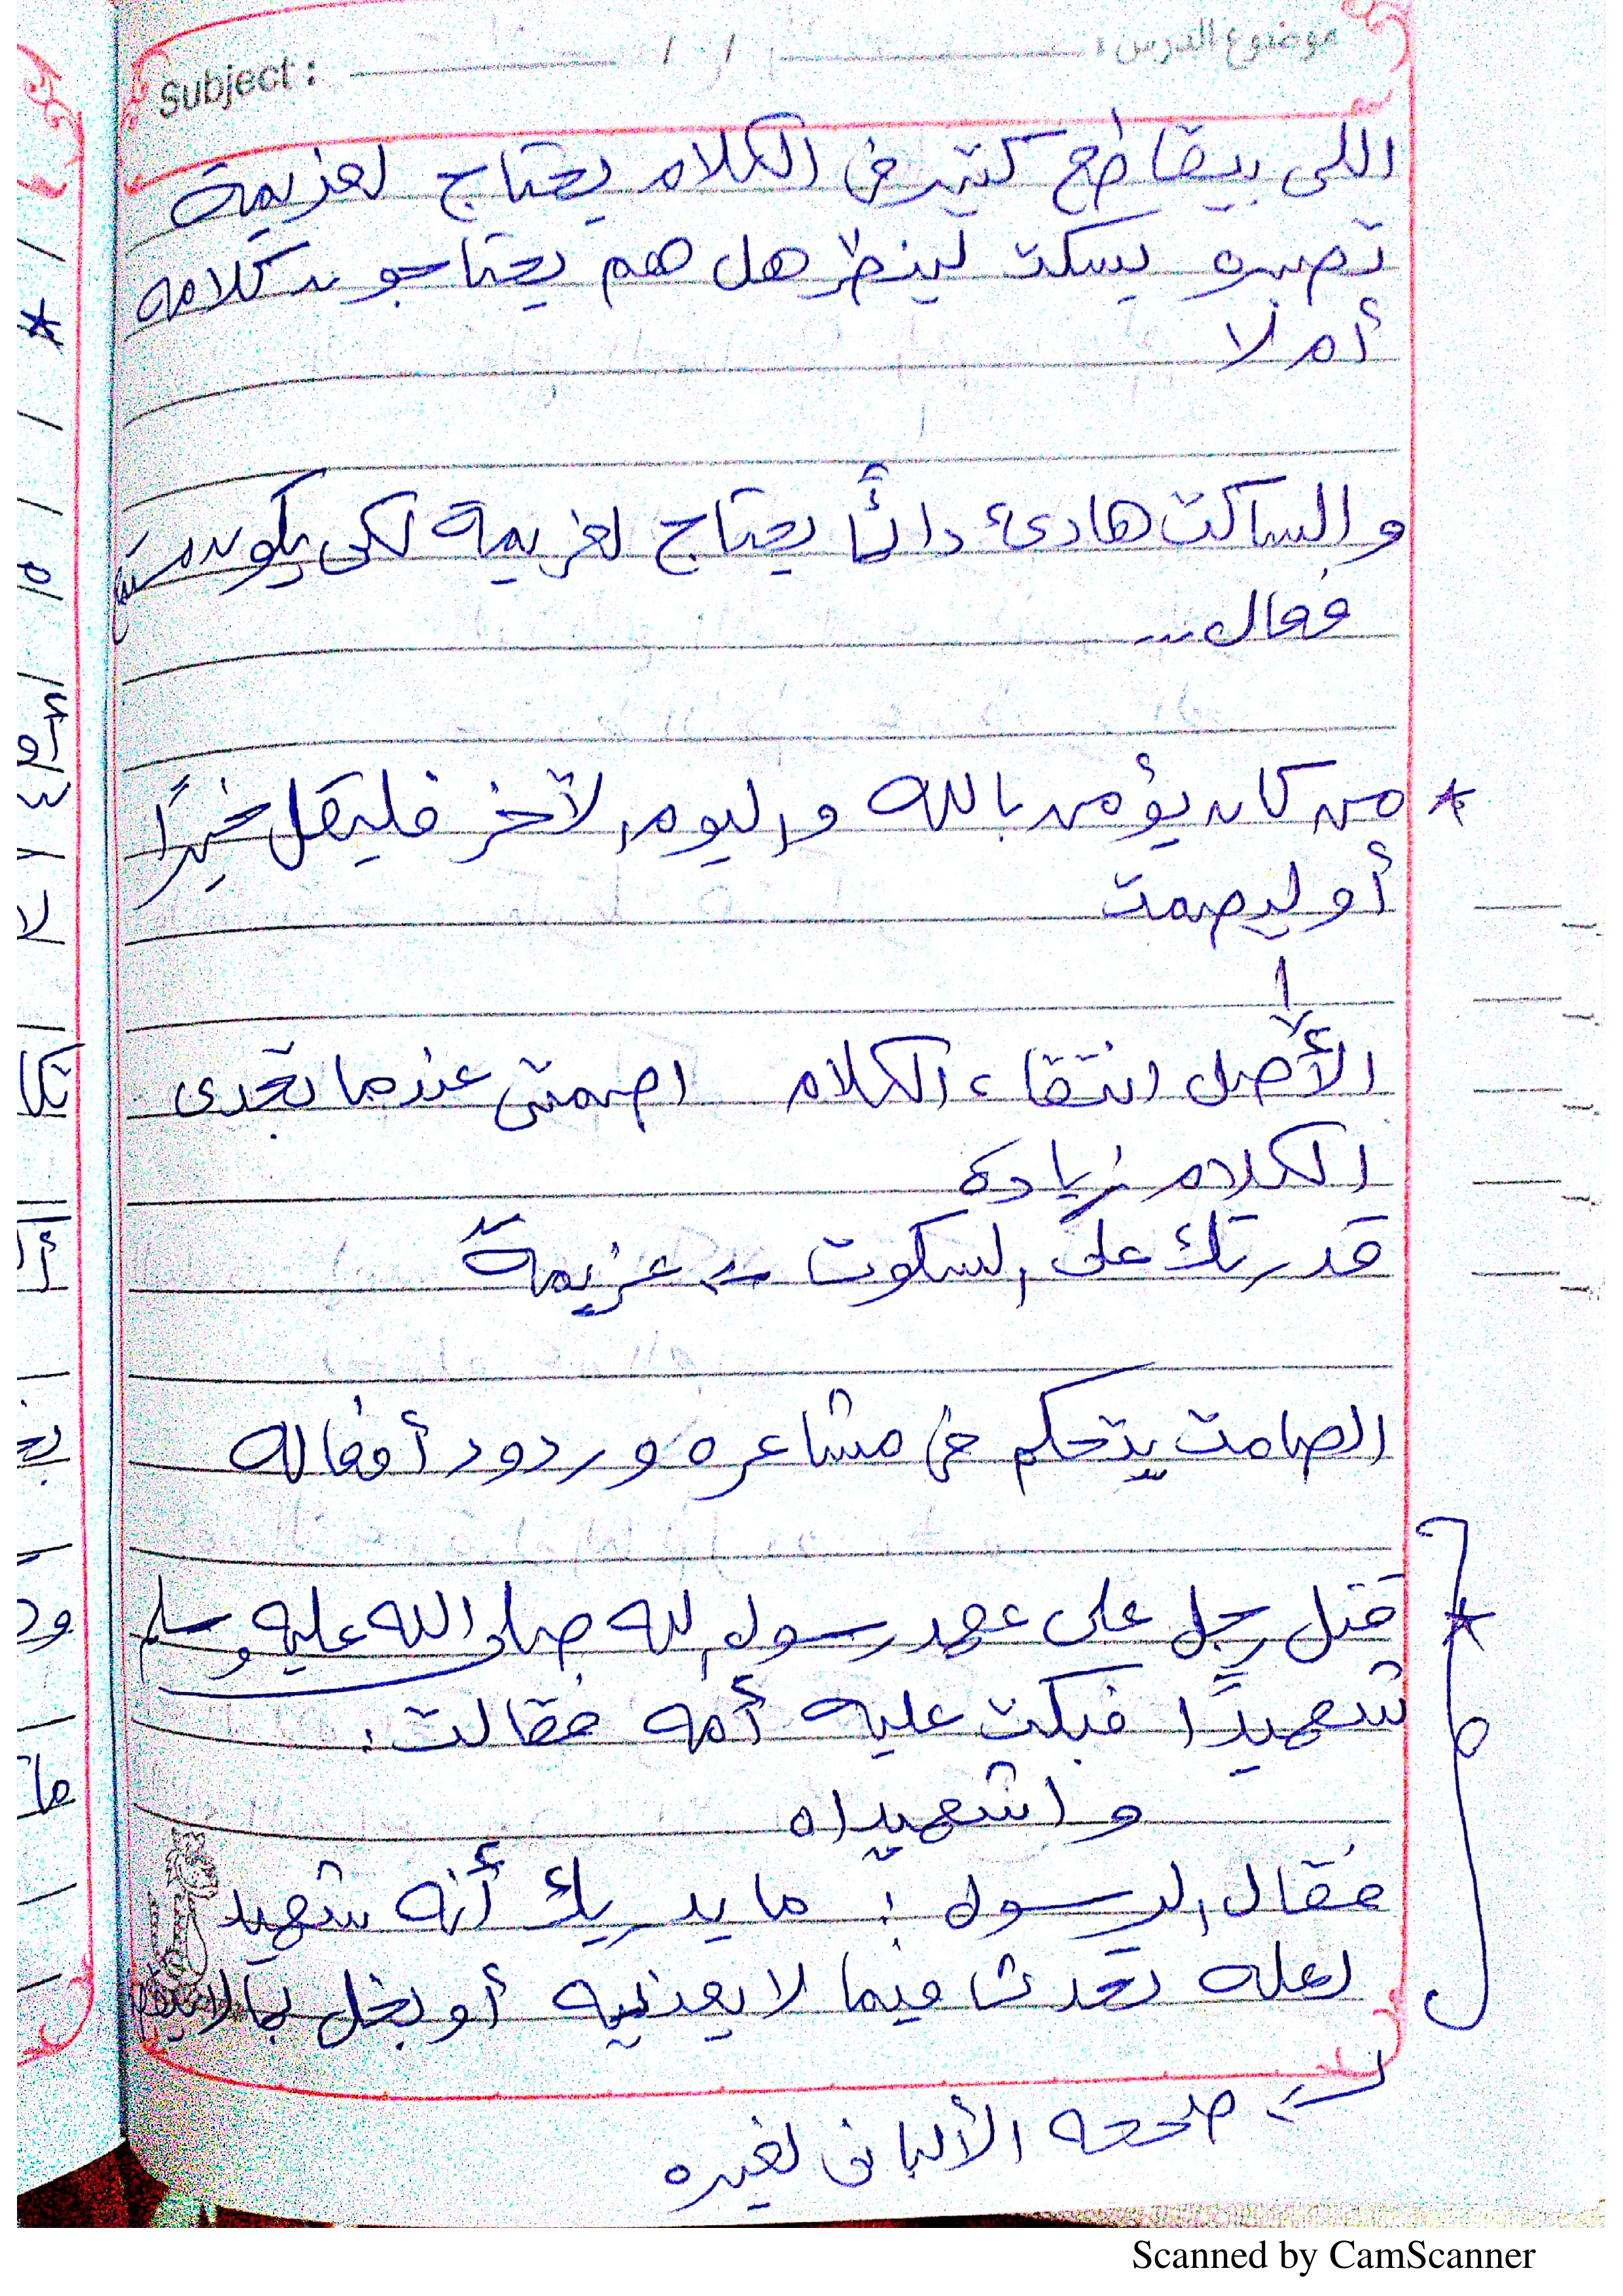 Subject : / / موضوع الدرس :
اللى بيقاطع كتير فى الكلام يحتاج لعزيمة
تصبره يسكت لينظر هل هم يحتاجون كلامه
أم لا
والساكت هادىء دائمًا يحتاج لعزيمة لكى يكون
فعال ...
* من كان يؤمن بالله واليوم الآخر فليقل خيرًا
أو ليصمت
الأصل انتقاء الكلام اصمتى عندما تجدى
الكلام زيادة
قدرتك على السكوت ← عزيمة
الصامت يتحكم فى مشاعره وردود أفعاله
* قتل رجل على عهد رسول الله صلى الله عليه وسلم
شهيدًا فبكت عليه أمه فقالت :
واشهيداه
فقال الرسول : ما يدريك أنه شهيد
لعله تحدث فيما لا يعنيه أو بخل بمالا
← صححه الألبانى لغيره
Scanned by CamScanner